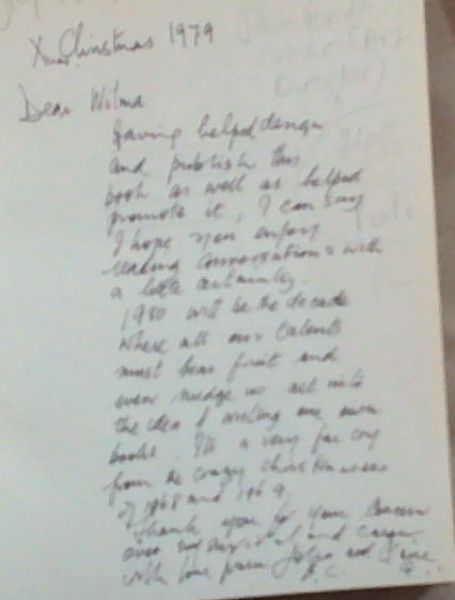 Xmas Christmas 1979
Dear Wilma
Having helped design
and publish this
book as well as helped
promote it, I can say
I hope you enjoy
reading Conversations with
a little certainty.
1980 will be the decade
where all our talents
must bear fruit and
even nudge us all into
the idea of writing our own
books. It's a very far cry
from the crazy
of 1968 and 1969
Thank you for your concern
over and
with love from and